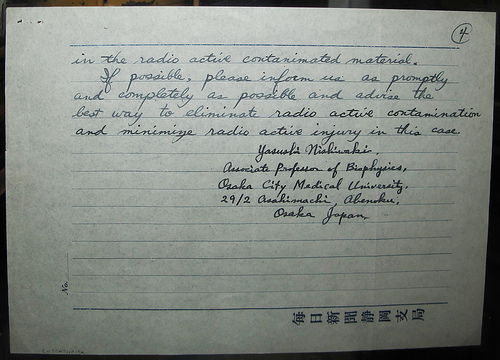 4
in the radio active contanimated material.
If possible, please inform us as promptly
and completely as possible and advise the
best way to eliminate radio active contamination
and minimize radio active injury in this case.
Yasushi Nishiwaki.
Associate Professor of Biophysics,
Osaka City Medical University.
29/2 Asahimachi, Abenoku,
Osaka Japan.
No.
毎日新聞静岡支局